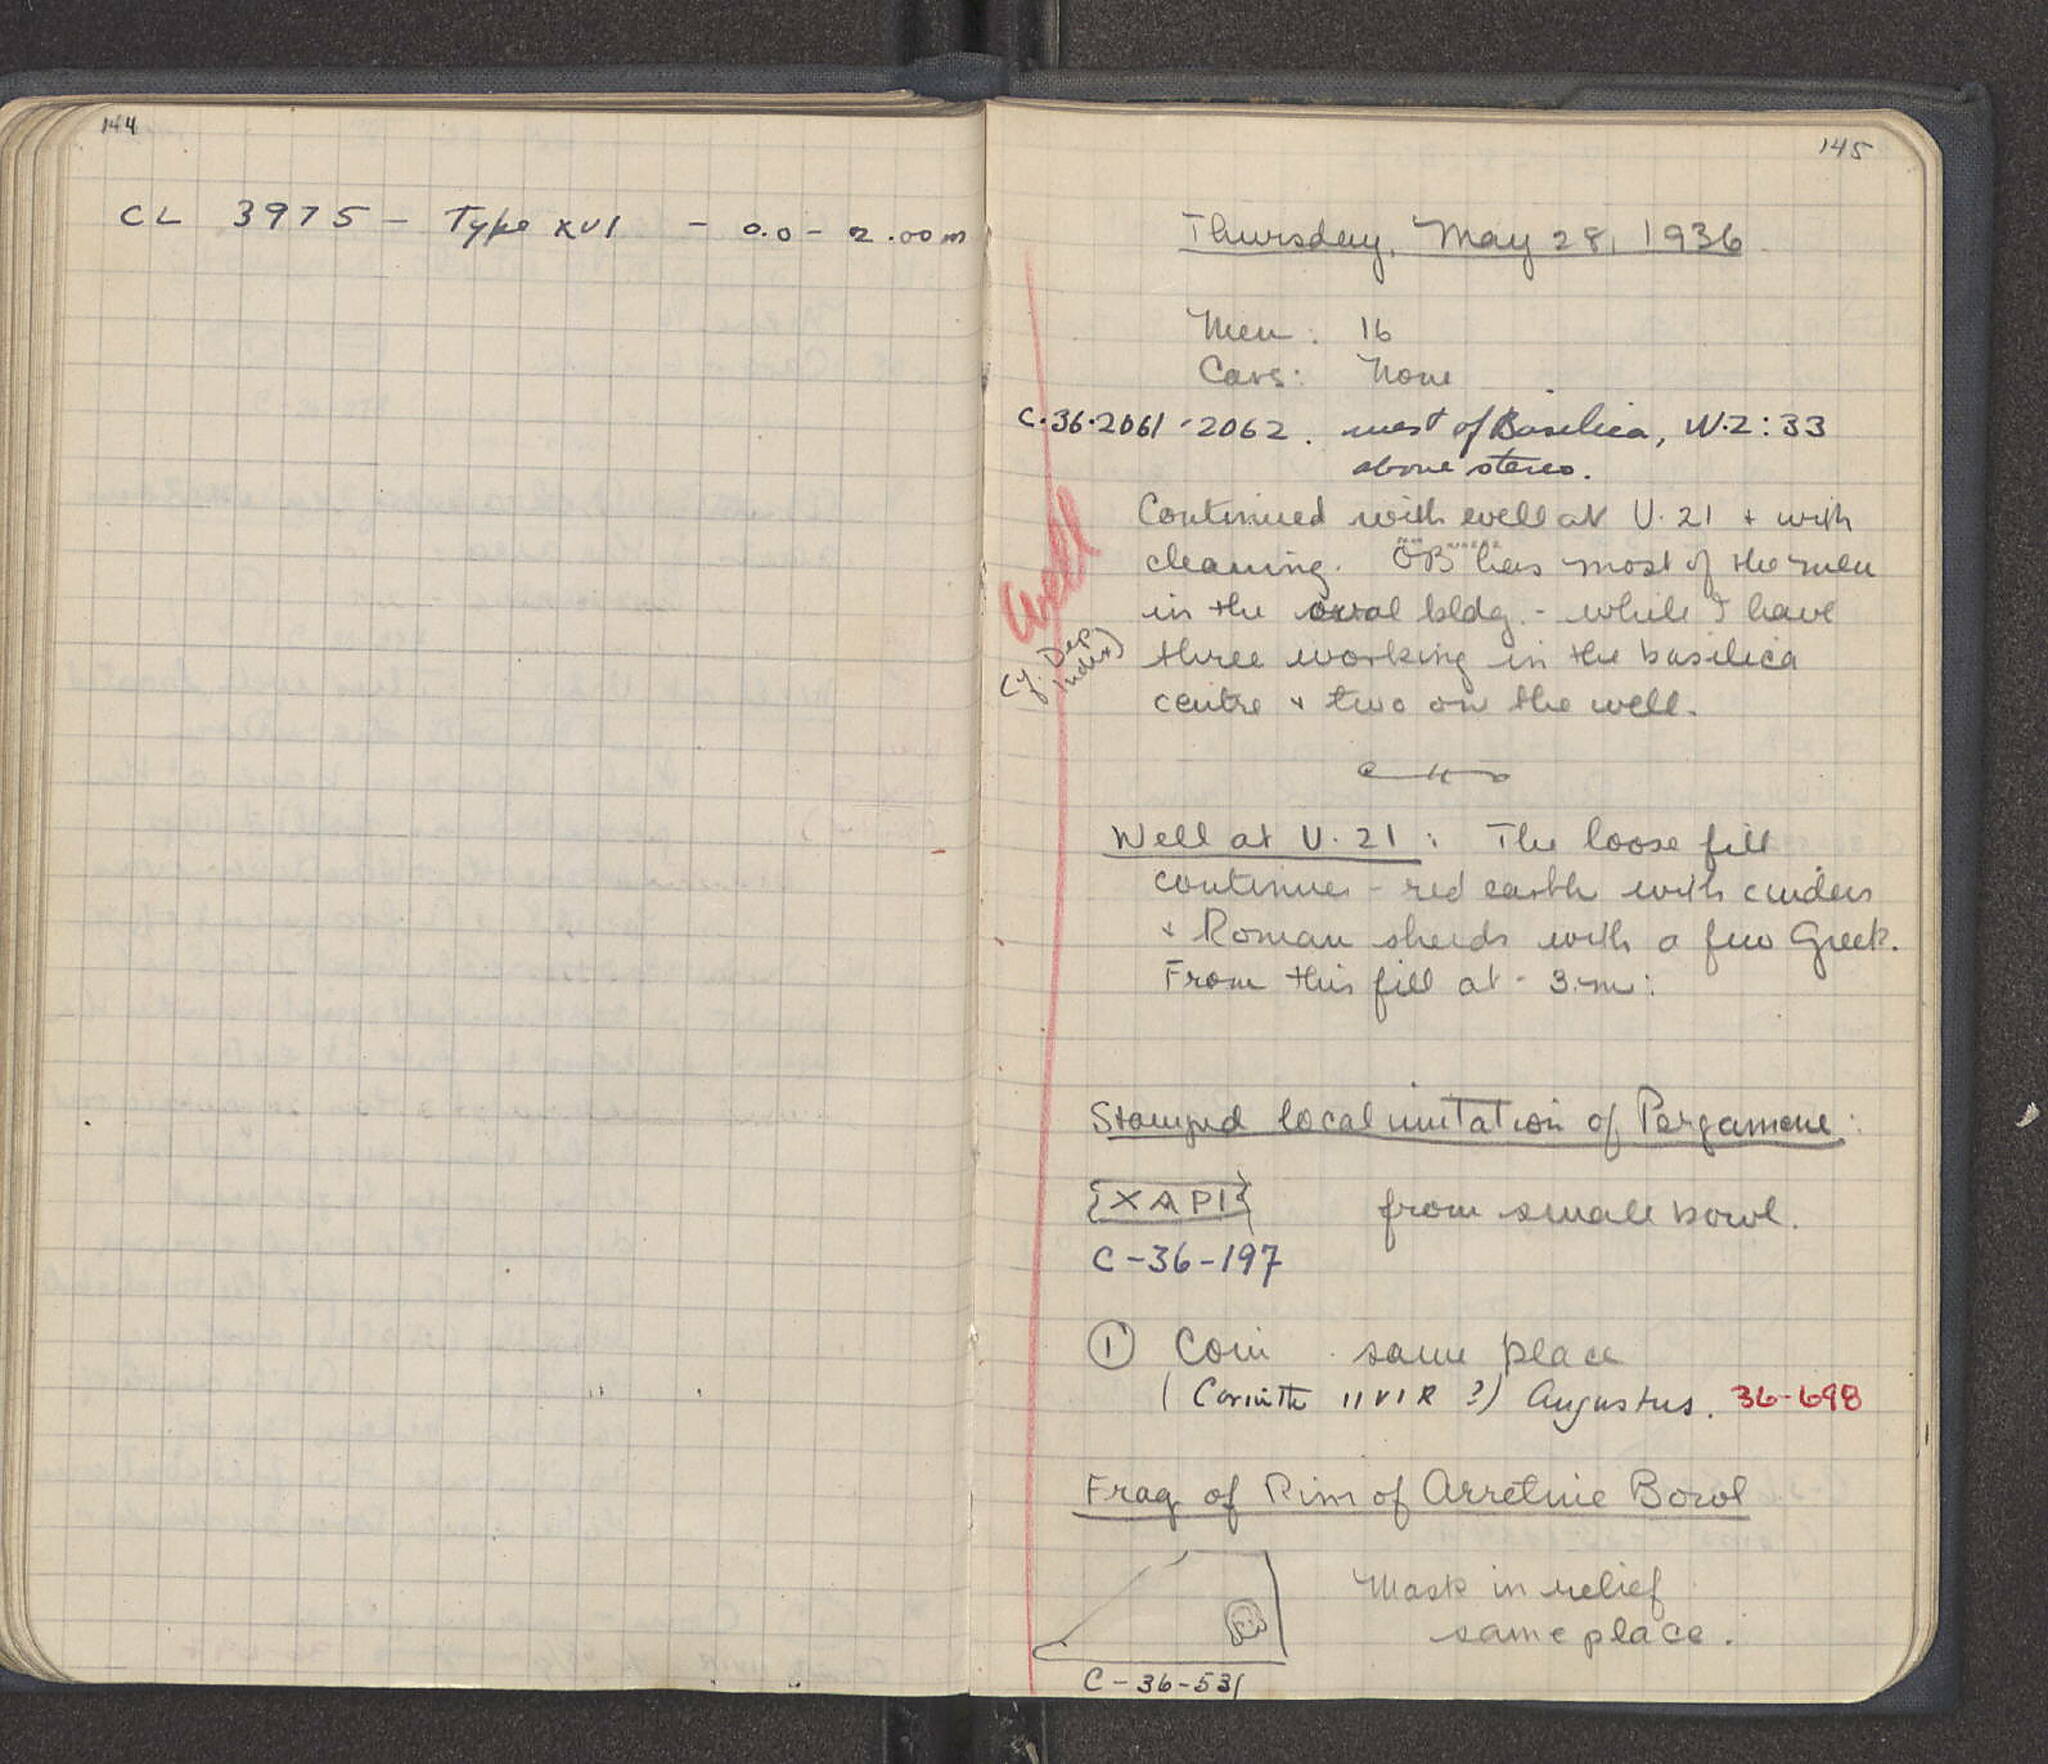 144
CL 3975 - Type XVI - 0.0 - 2.00m
145
Thursday, May 28, 1936.
Men: 16
Cars: None
C.36.2061-2062. west of Basilica, N.Z:33
above stereo.
Continued with well at U.21 + with
cleaning. OB has most of the men
in the oval bldg. - while I have
three working in the basilica
centre + two on the well.
Well
(cf. Dep.
Index)
Well at U.21: The loose fill
continues - red earth with cinders
+ Roman sherds with a few Greek.
From this fill at - 3.m:
Stamped local imitation of Pergamene:
ΧΑΡΙ from small bowl.
C-36-197
① Coin. same place
(Corinth IIVIR?) Augustus. 36-698
Frag of Rim of Arretine Bowl
Mask in relief
same place.
C-36-531